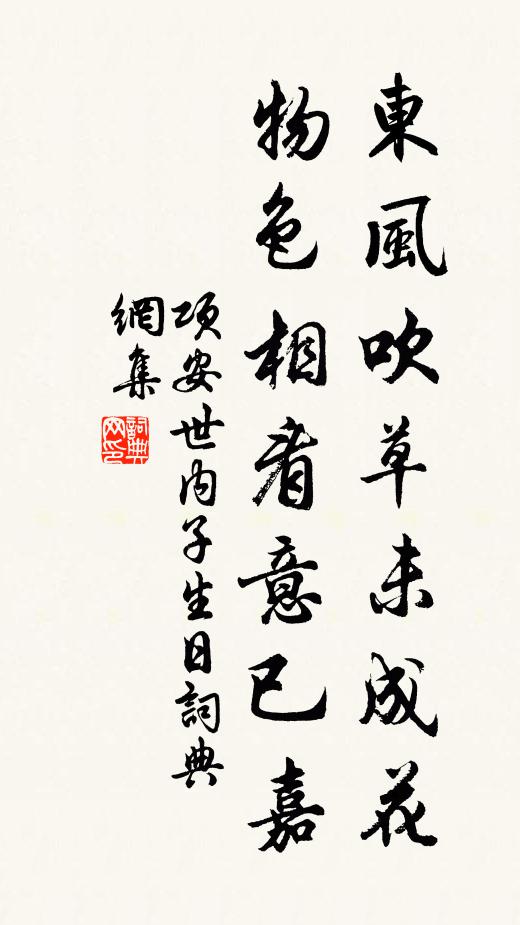 東風吹草未成花
物色相看意已嘉
項安世内子生日詞典
網集
詞典
网印